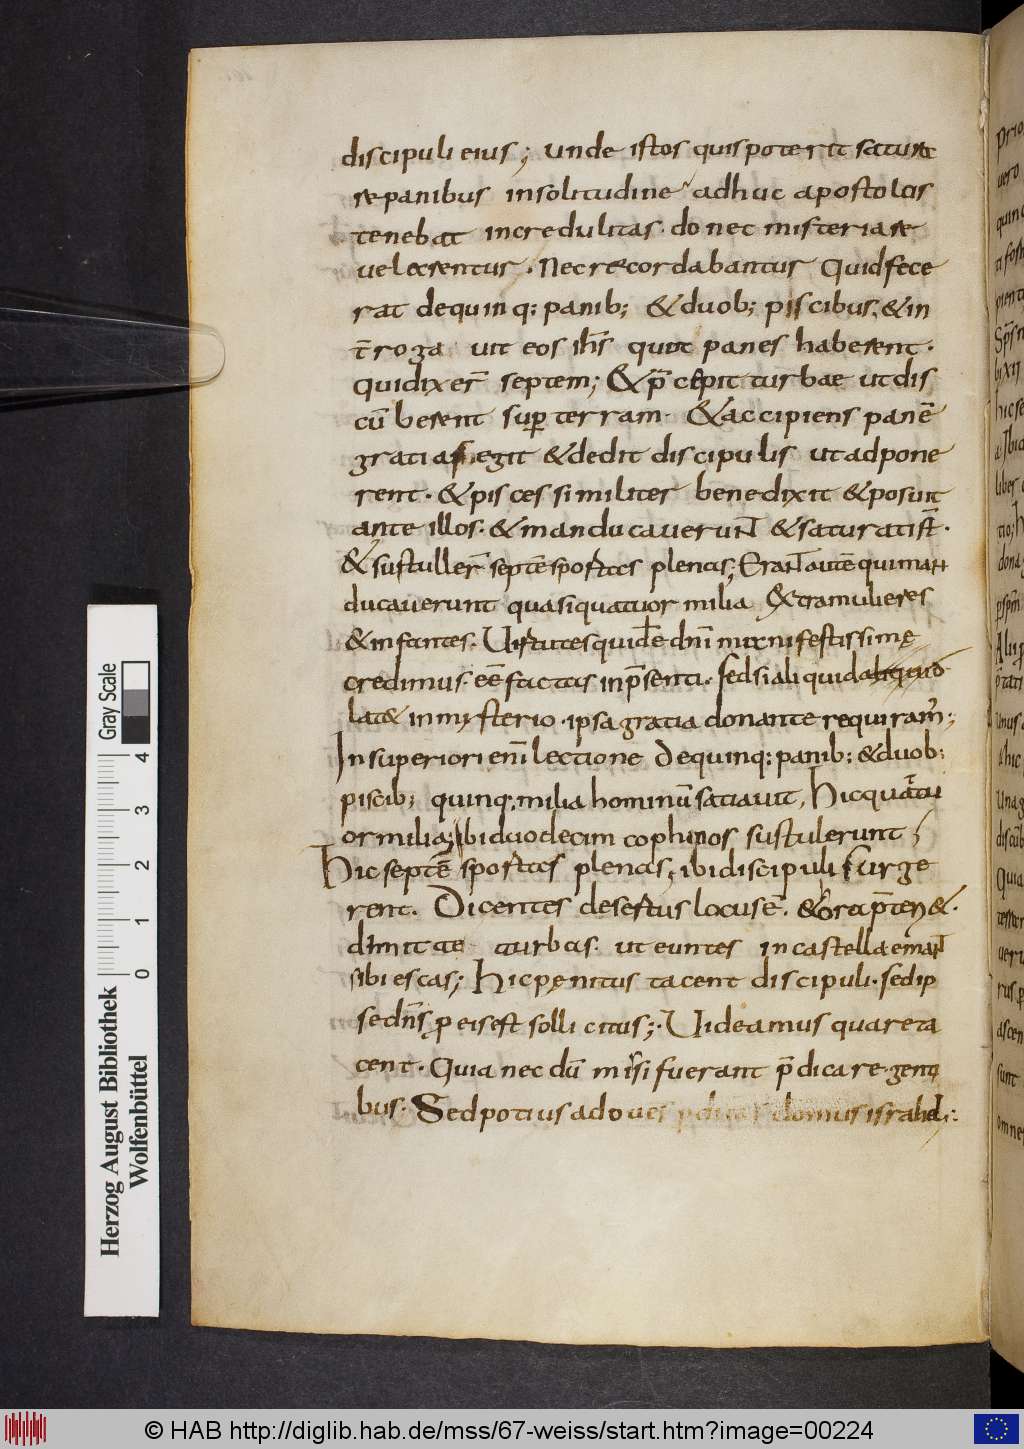 discipuli eius; unde istos quis poterit satura
re panibus in solitudine adhuc apostolos
tenebat incredulitas. donec misteria re
velarentur. Nec recordabantur quid fece
rat de quinq: panib; & duob; piscibus, & in
t̄roga uit eos ih̄s quot panes haberent.
qui dixer̄ septem; & p̄cepit turbae ut dis
cū berent sup̱ terram. & accipiens panē
gratias egit & dedit discipulis ut adpone
rent. & pisces similiter benedixit & posuit
ante illos. & manducauerunt & saturati s̄t.
& sustuller̄ septē sportas plenas; Erant autē qui man
ducauerunt quasi quatuor milia extra mulieres
& infantes. Uirtutes quidē dn̄i manifestissimę
credimus. eē factas in p̄senti. sed si aliquid
lat& in mysterio. ipsa gratia donante requiram̄;
In superiori enī lectione de quinq: panib: & duob:
piscib; quinq; milia hominū satiauit, hic quatu
or milia; ibi duodecim cophinos sustulerunt;
hic septē sportas plenas, ibi discipuli surge
rent. Dicentes desertus locus ē. & ora p̄ter&.
dimittae turbas. ut euntes in castella emant
sibi escas; hic pęnitus tacent discipuli. sed ip
se dn̄s p̱ eis est sollicitus; Uideamus quare ta
cent. Quia nec dū misi fuerant p̄dicare genti
bus. Sed potius ad oues domus israhel;
Gray Scale
0 1 2 3 4
Herzog August Bibliothek
Wolfenbüttel
© HAB http://diglib.hab.de/mss/67-weiss/start.htm?image=00224